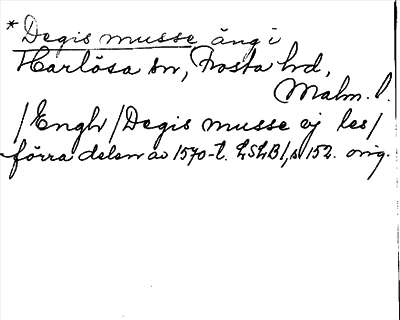 *Degis musse äng i
Harlösa sn, Frosta hd,
Malm. l.
/Engh/Degis musse ej les/
förra delen av 1570-t. LSLB1, s 152. orig.